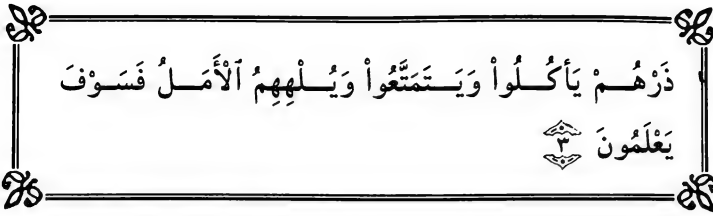 ذَرْهُمْ يَأْكُلُوا۟ وَيَتَمَتَّعُوا۟ وَيُلْهِهِمُ ٱلْأَمَلُ فَسَوْفَ
يَعْلَمُونَ ٣